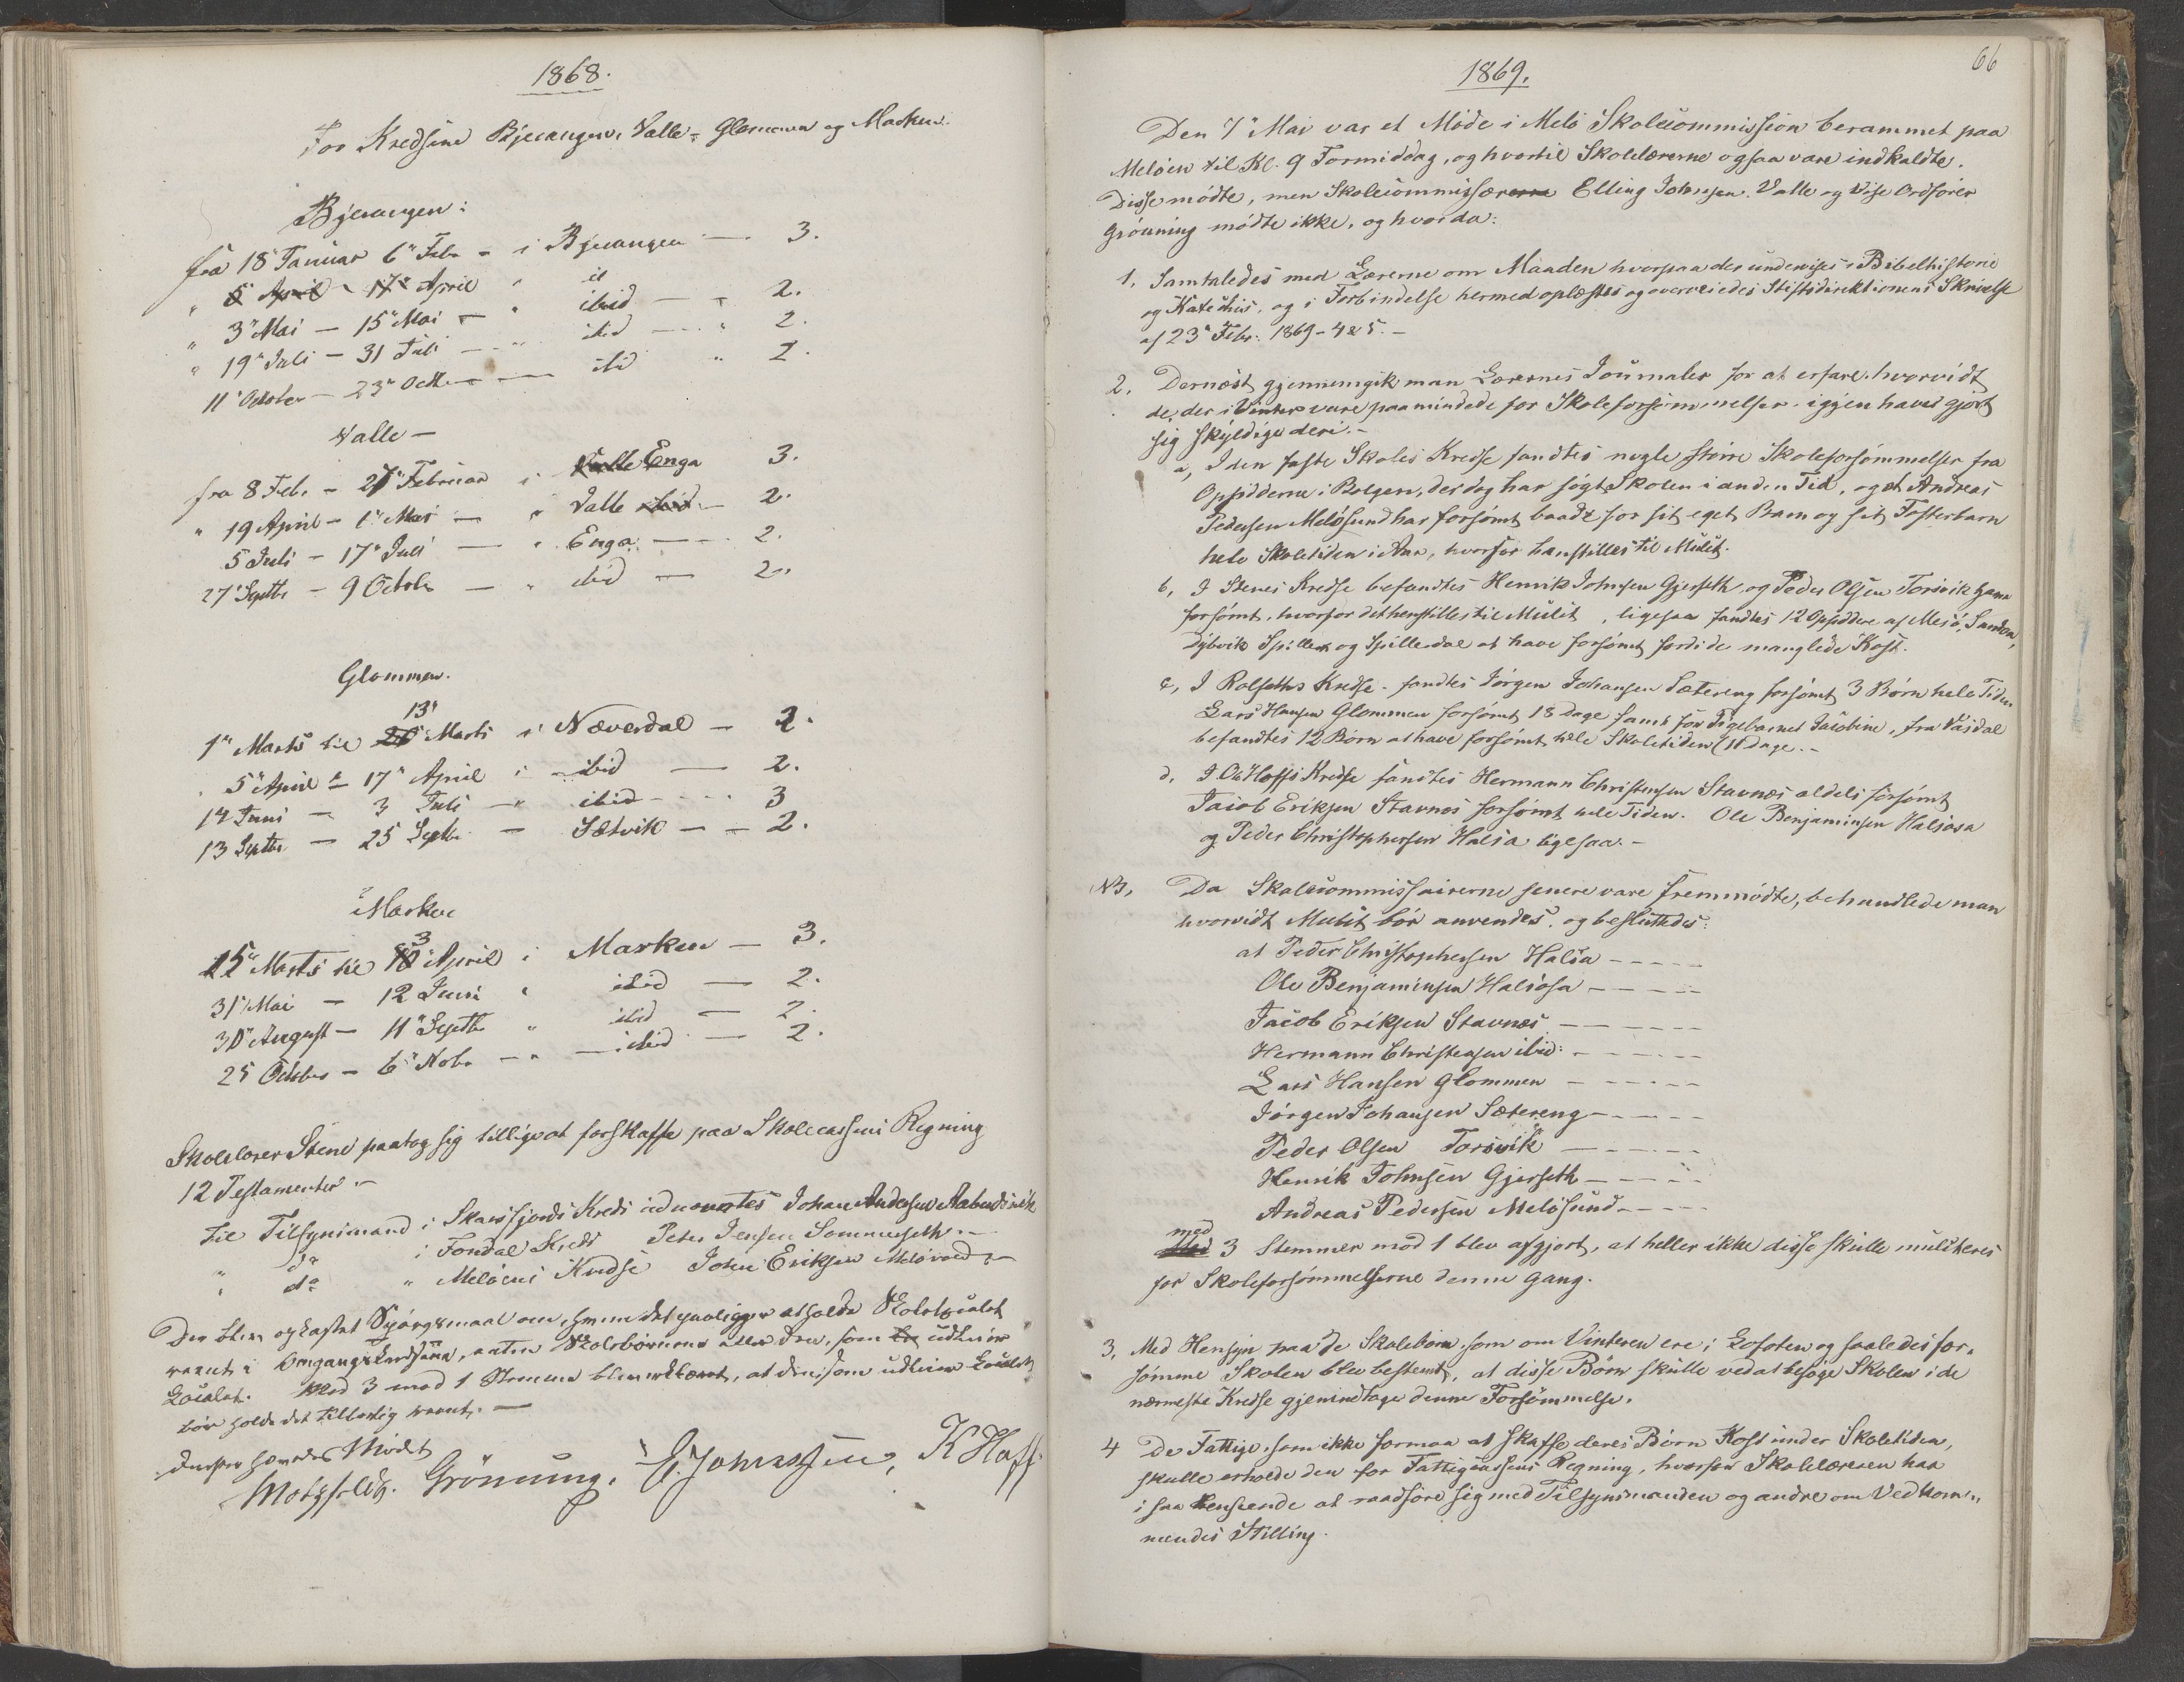 1868.
For Kredsene Bjerangen, Valle, Glommen og Marken.
Bjerangen:
fra 18 Januar 6 Febr - i Bjerangen - 3.
" 5 April - 17 April " id
" 3 Mai - 15 Mai - " ibid - " 2.
" 19 Juli - 31 Juli - " ibid - " 2.
11 October - 23 Octbr - ibid " 2.
Valle -
fra 8 Febr. - 27 Februar i Valle Enga 3.
" 19 April - 1 Mai - " Valle ibid - 2.
5 Juli - 17 Juli - " Enga - 2.
27 Septbr - 9 Octobr - " ibid - 2.
Glommen.
13
1 Marts til 20 Marts i Næverdal - 2.
5 April - 17 April i ibid - 2.
14 Juni - 3 Juli - " ibid - 3
13 Septbr - 25 Septbr - Sætvik - - 2.
Marken
3
15 Marts til 10 April i Marken - 3.
31 Mai - 12 Juni " ibid - 2.
30 August - 11 Septbr " ibid - 2.
25 October - 6 Nobr - " - ibid - 2.
Skolelærer Stene paatog sig tillige at forskaffe paa Skolecassens Regning
12 Testamenter. -
Til Tilsynsmand i Skarsfjords Kreds udnævntes Johan Andersen
" do i Fondal Kreds Peter Jensen Sommerseth. -
" do " Meløens Kredse John Eriksen Meløvær. -
Der blev opkastet Spørgsmaal om, hvem det paaligger at holde Skolelocalet
varmt i Omgangskredsene, enten Skolebørnene eller den, som udleier
Localet. Med 3 mod 1 Stemme blev erklæret, at den som udleier Localet
bør holde det tilbørlig varmt. -
Derpaa hævedes Mødet
Motzfeldt. Grönning. E. Johnssen, K Hoff.
66
1869.
Den 7 Mai var et Møde i Melø Skolecommission berammet paa
Meløen til Kl. 9 Formiddag, og hvortil Skolelærerne ogsaa vare indkaldte.
Disse mødte, men Skolecommissærerne Elling Johnsen Valle og Vise Ordfører
Grönning mødte ikke, og hvor da:
1, Samtaledes med Lærerne om Maaden hvorpaa der undervises i Bibelhistorie
og Katechis. og i Forbindelse hermed oplæstes og overveiedes Stiftsdirektionens Skrivelse
af 23 Febr. 1869 - 425. -
2, Dernæst gjennemgik man Lærernes Journaler for at erfare, hvorvidt
de, der i Vinter vare paamindede for Skoleforsømmelser, igjen havde gjort
sig skyldige deri. -
a, I den faste Skoles Kredse fandtes nogle større Skoleforsømmelser fra
Opsidderne i Bolgen, der dog har søgt Skolen i anden Tid, og at Andreas
Pedersen Meløsund har forsømt baade for sit eget Barn og sit Fosterbarn
hele Skoletiden i Aar, hvorfor henstilles til Mulct.
b, I Stenes Kredse befandtes Henrik Johnsen Gjerseth og Peder Olsen Torsvik have
forsømt, hvorfor det henstilles til Mulct, ligesaa fandtes 12 Opsiddere af Mesø, Sandaa,
Dybvik Spilleren og Spillerdal at have forsømt fordi de manglede Kost.
c, I Rolseths Kredse fandtes Jørgen Johansen Sætereng forsømt 3 Børn hele Tiden
Lars Hansen Glommen forsømt 18 Dage samt for Pigebarnet Jacobine, fra Vasdal
befandtes 12 Børn at have forsømt hele Skoletiden (11 Dage. -
d, I Ol. Hoffs Kredse fandtes Hermann Christensen Stavnæs aldeles forsømt
Jacob Eriksen Stavnes forsømt hele Tiden. Ole Benjaminsen Halsosa
og Peder Christophersen Halsa ligesaa. -
NB, Da Skolecommissairerne senere vare fremmødte, behandlede man
hvorvidt Mulct bør anvendes, og besluttedes:
at Peder Christophersen Halsa - - - - -
Ole Benjaminsen Halsosa - - - - -
Jacob Eriksen Stavnæs - - - - -
Hermann Christensen ibid: - - - - -
Lars Hansen Glommen - - - - -
Jørgen Johansen Sætereng - - - - -
Peder Olsen Torsvik - - - - -
Henrik Johnsen Gjerseth - - - - -
Andreas Pedersen Meløsund - - - - -
med
Med 3 Stemmer mod 1 blev afgjort, at heller ikke disse skulle mulkteres
for Skoleforsømmelserne denne Gang.
3, Med Hensyn paa de Skolebørn, som om Vinteren ere i Lofoten og saaledes for-
sømme Skolen blev bestemt, at disse Børn skulle ved at besøge Skolen i de
nærmeste Kredse gjenindtage denne Forsømmelse.
4 De Fattige, som ikke formaa at skaffe deres Børn Kost under Skoletiden,
skulle erholde den for Fattigcassens Regning, hvorfor Skolelæreren har
i saa Henseende at raadføre sig med Tilsynsmanden og andre om Vedkom-
mendes Stilling.